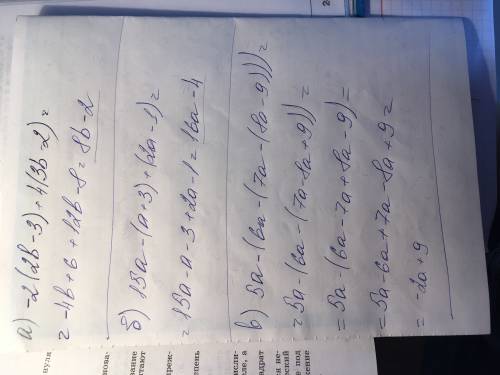 а) -2(2b-3)+4(3b-2)=
= -4b+6+12b-8=8b-2
б) 15a-(a+3)+(2a-1)=
=15a-a-3+2a-1=16a-4
в) 5a-(6a-(7a-(8a-9)))=
=5a-(6a-(7a-8a+9))=
=5a-(6a-7a+8a-9)=
=5a-6a+7a-8a+9=
= -2a+9
нуля
нова-
вание
тают
преж-
епень